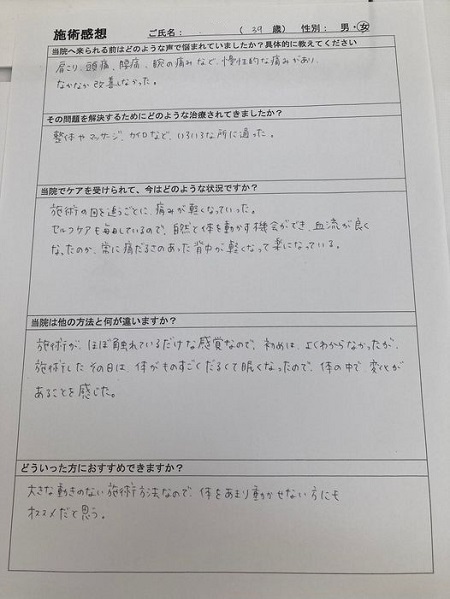 施術感想 ご氏名： （ 39 歳） 性別： 男・女
当院へ来られる前はどのような声で悩まれていましたか？具体的に教えてください
肩こり、頭痛、腰痛、腕の痛みなど、慢性的な痛みがあり、
なかなか改善しなかった。
その問題を解決するためにどのような治療されてきましたか？
整体やマッサージ、カイロなど、いろいろな所に通った。
当院でケアを受けられて、今はどのような状況ですか？
施術の回を追うごとに、痛みが軽くなっていった。
セルフケアも毎日しているので、自然と体を動かす機会ができ、血流が良く
なったのか、常に痛だるさのあった背中が軽くなって楽になっている。
当院は他の方法と何が違いますか？
施術が、ほぼ触れているだけな感覚なので、初めは、よくわからなかったが、
施術したその日は、体がものすごくだるくて眠くなったので、体の中で、変化が
あることを感じた。
どういった方におすすめできますか？
大きな動きのない施術方法なので、体をあまり動かせない方にも
オススメだと思う。